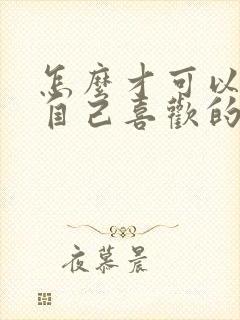 怎麼才可以
自己喜歡的
夜慕晨